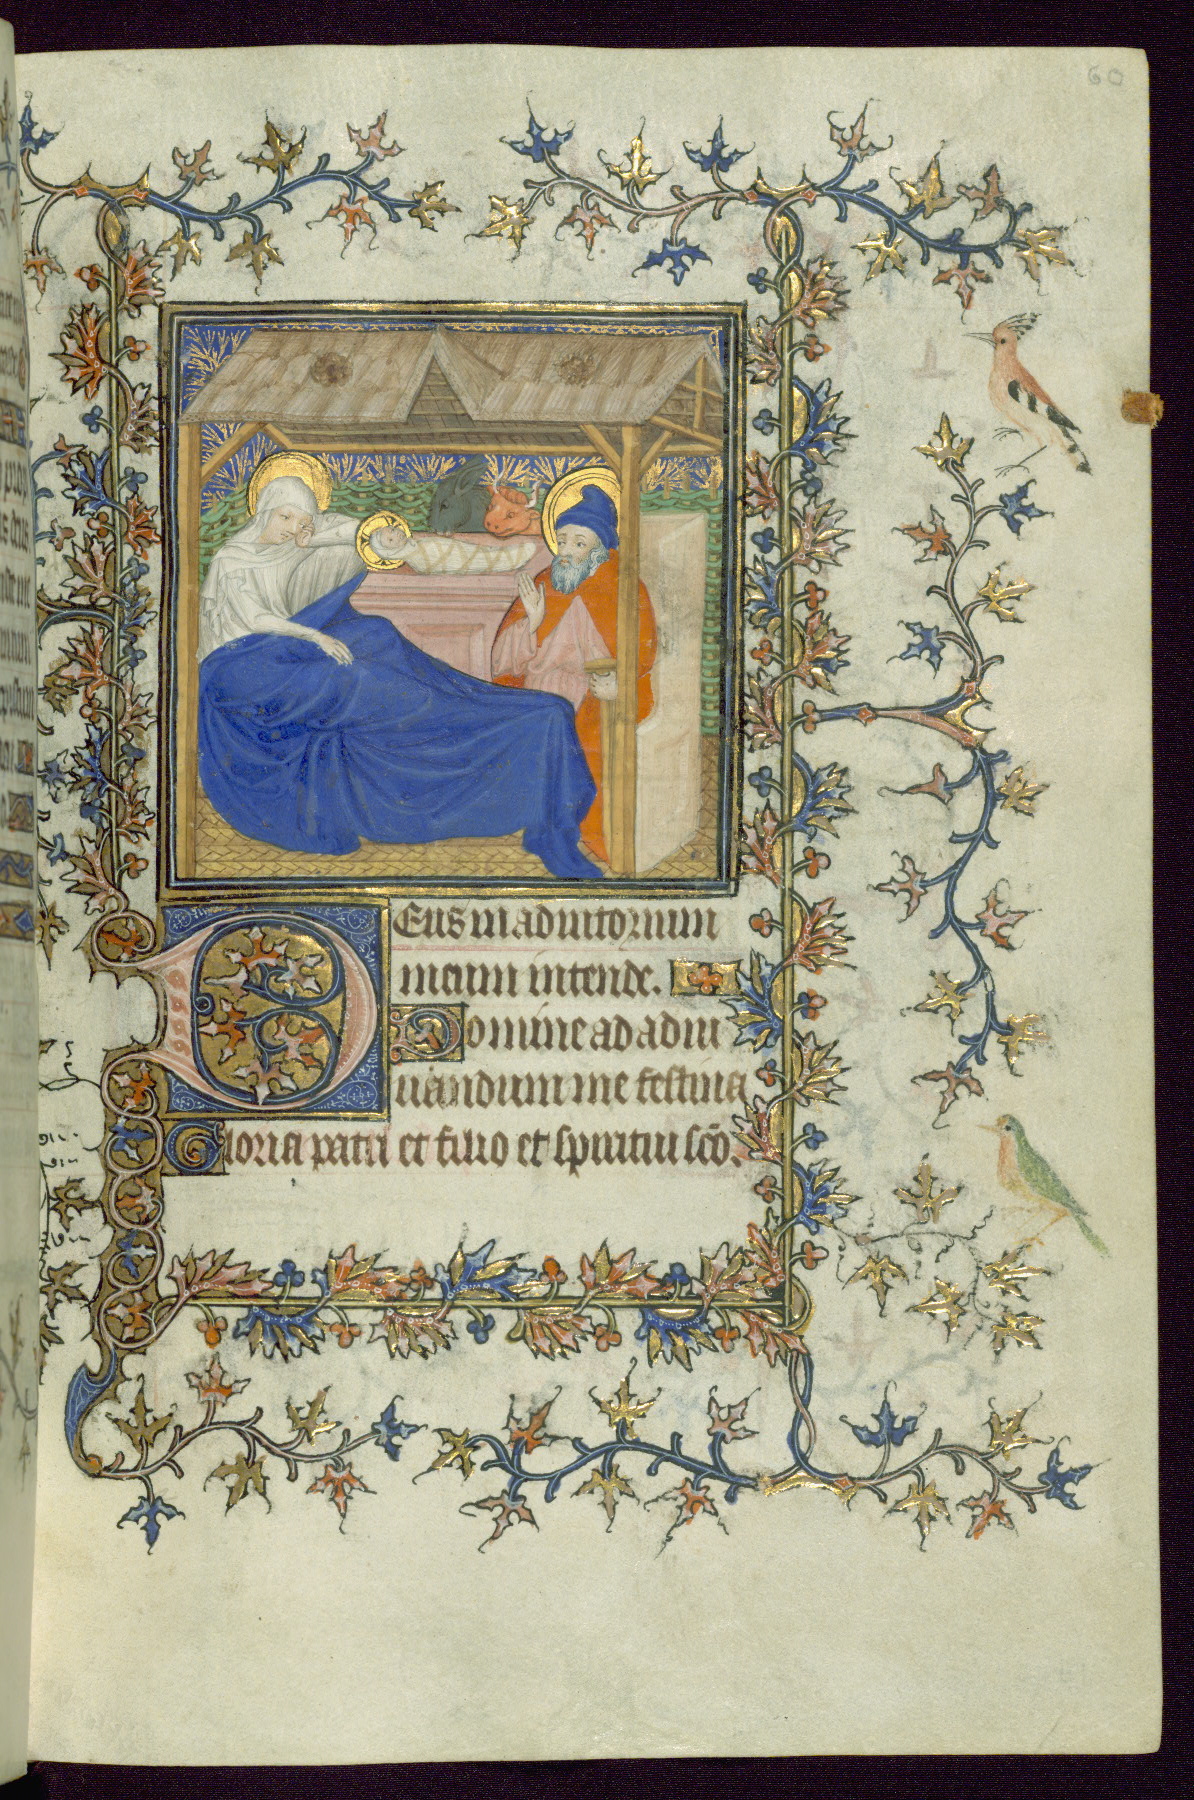 60
Deus in adiutorium
meum intende.
Domine ad adiu
uandum me festina
Gloria patri et filio et spiritui sco.